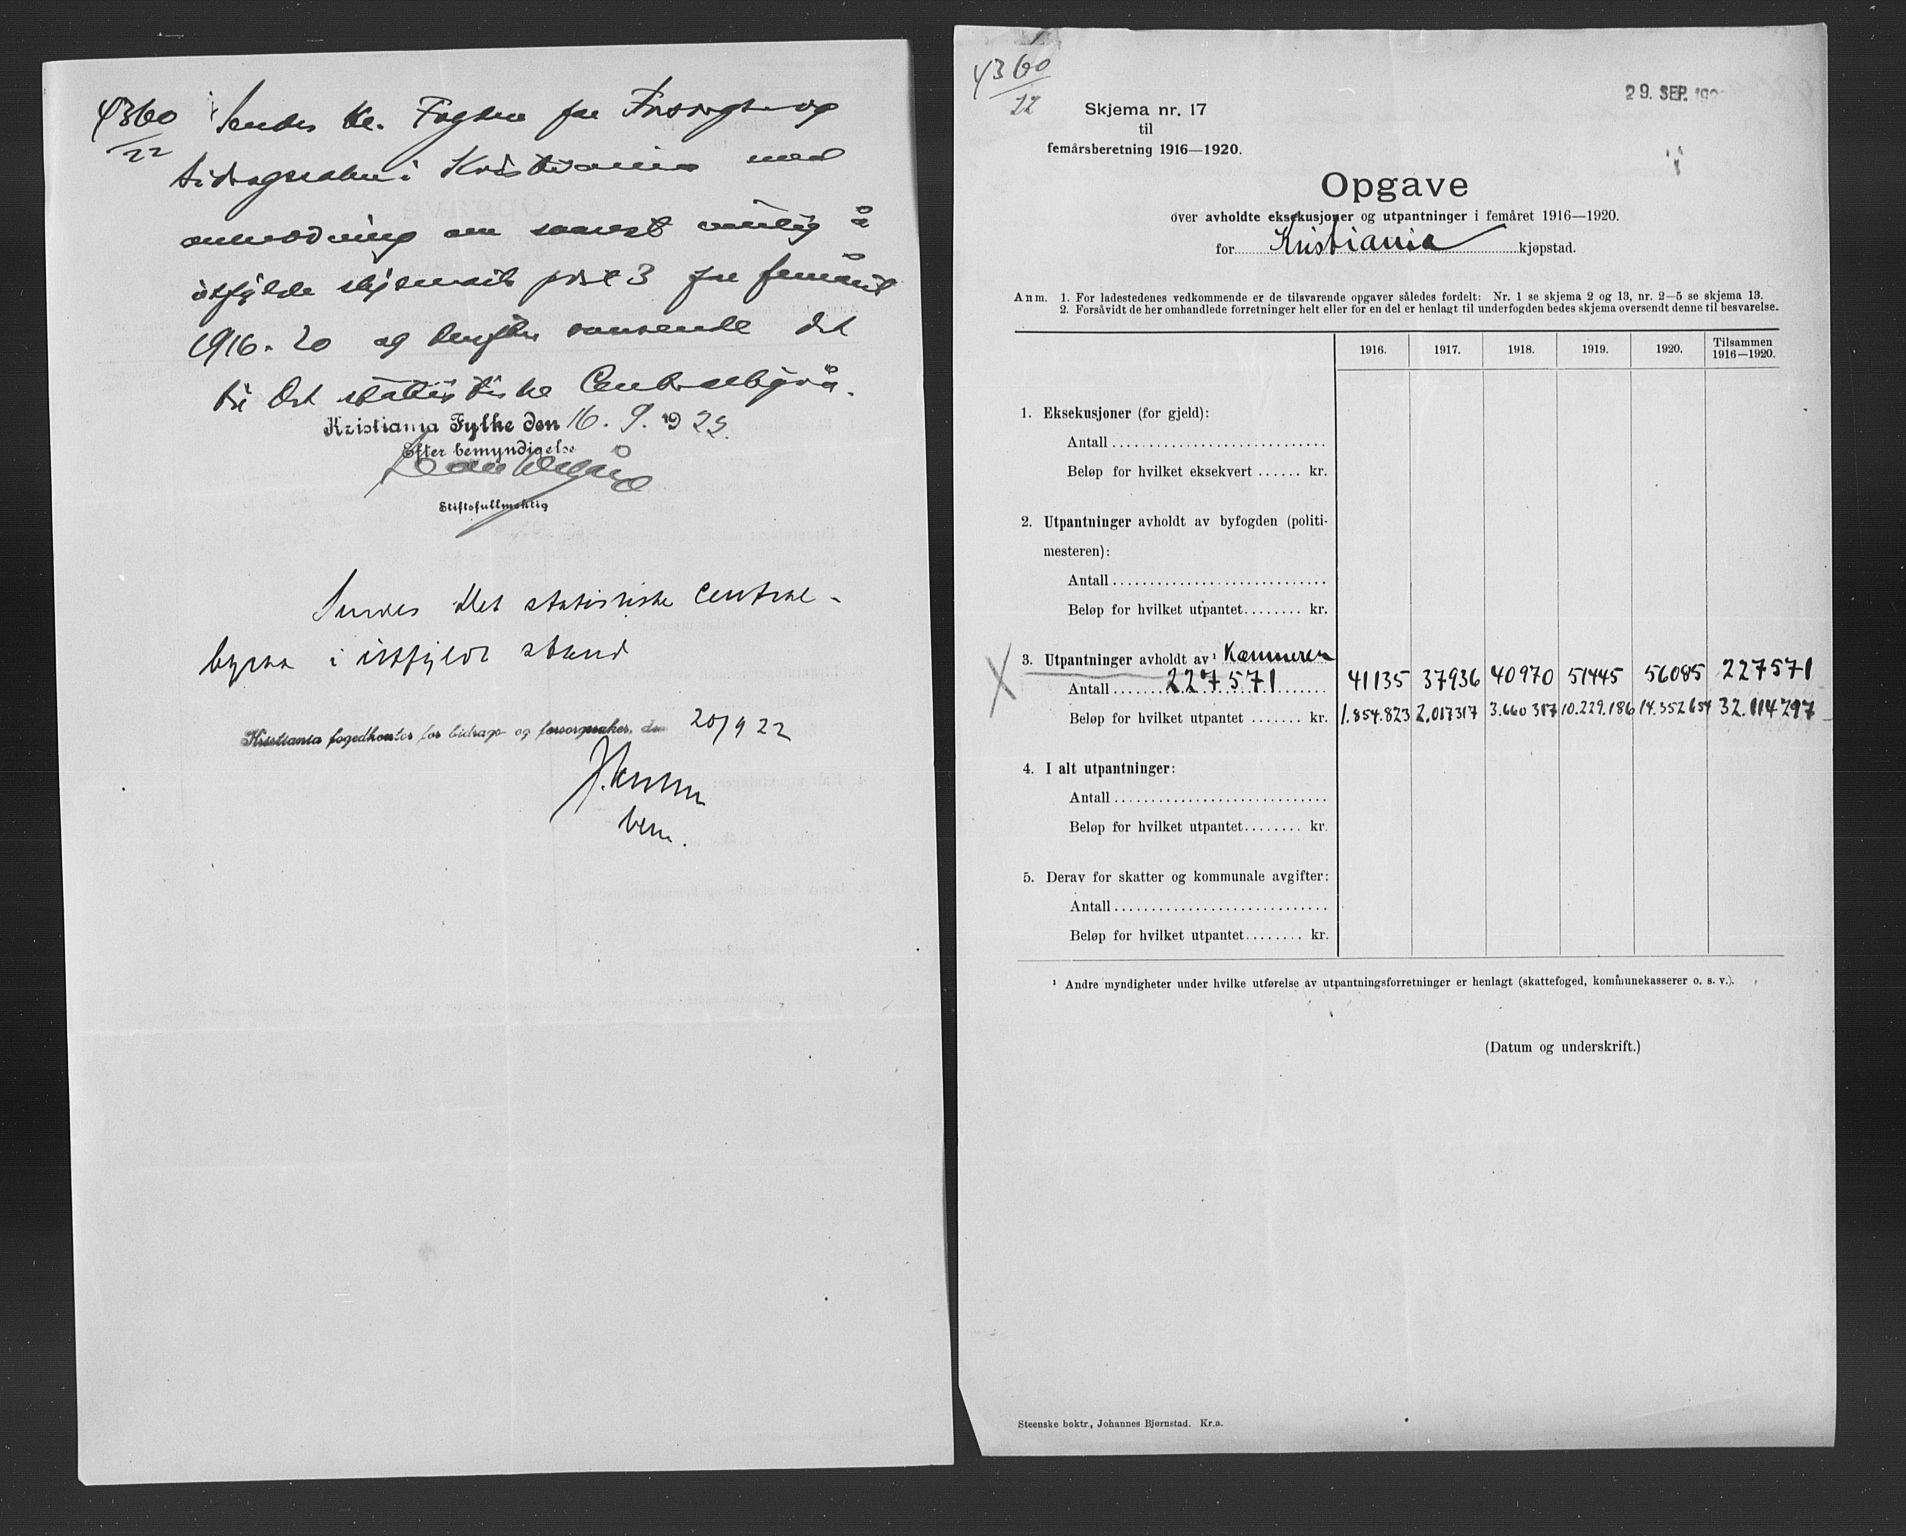 4360
22
Sendes Hr. Fogden for Forsorgs- og
bidragssaker i Kristiania med
anmodning om snarest mulig å
utfylde skjemaets post 3 for femåret
1916-20 og derefter oversende det
til Det statistiske Centralbyrå.
Kristiania Fylke den 16. 9. 1922.
Efter bemyndigelse
Stiftsfullmektig
Sendes Det statistiske Central-
byraa i utfyldt stand
Kristiania fogedkontor for bidrags- og forsorgssaker, den 20/9 22
bem.
4360
22
29. SEP. 192
Skjema nr. 17
til
femårsberetning 1916—1920.
Opgave
over avholdte eksekusjoner og utpantninger i femåret 1916—1920.
for Kristiania kjøpstad.
Anm. 1. For ladestedenes vedkommende er de tilsvarende opgaver således fordelt: Nr. 1 se skjema 2 og 13, nr. 2—5 se skjema 13.
2. Forsåvidt de her omhandlede forretninger helt eller for en del er henlagt til underfogden bedes skjema oversendt denne til besvarelse.
1916. 1917. 1918. 1919. 1920. Tilsammen 1916—1920.
1. Eksekusjoner (for gjeld):
Antall
Beløp for hvilket eksekvert ...... kr.
2. Utpantninger avholdt av byfogden (politi-
mesteren):
Antall
Beløp for hvilket utpantet........ kr.
3. Utpantninger avholdt av¹ Kæmneren
Antall 227571 41135 37936 40970 51445 56085 227571
Beløp for hvilket utpantet ...... kr. 1.854.823 2.017317 3.660317 10.229.186 14.352654 32.114297
4. I alt utpantninger:
Antall
Beløp for hvilket utpantet........ kr.
5. Derav for skatter og kommunale avgifter:
Antall
Beløp for hvilket utpantet........ kr.
¹ Andre myndigheter under hvilke utførelse av utpantningsforretninger er henlagt (skattefoged, kommunekasserer o. s. v.).
(Datum og underskrift.)
Steenske boktr., Johannes Bjørnstad. Kr.a.